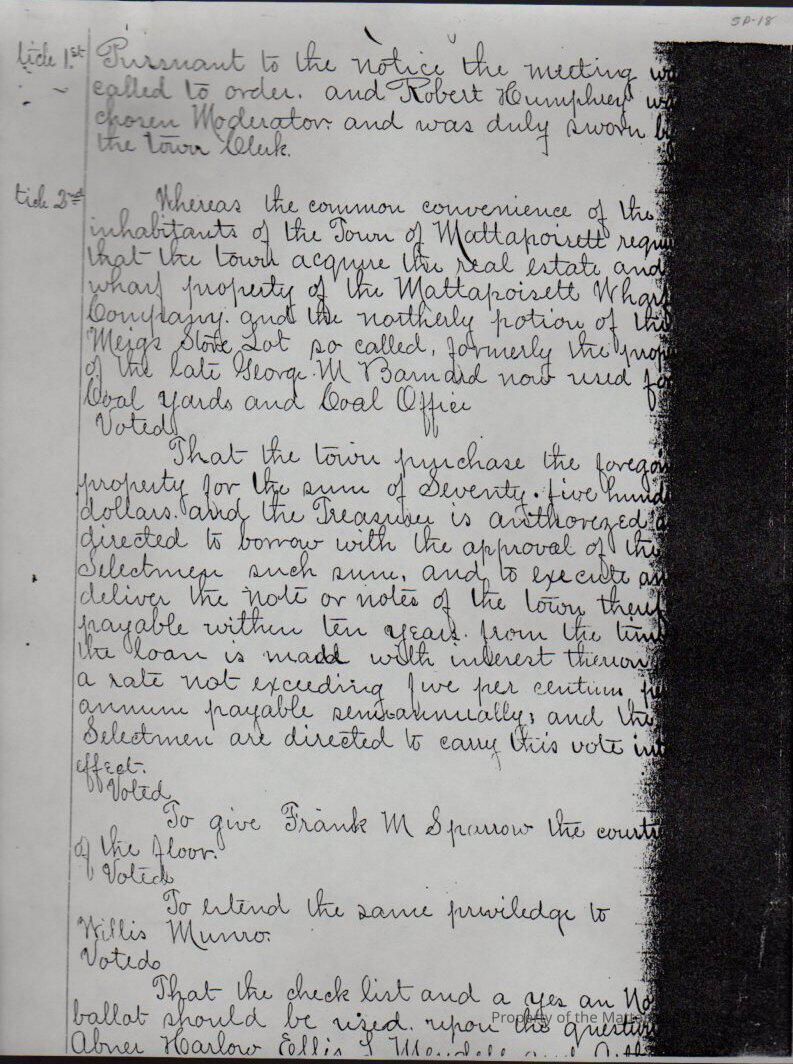 SP-18
ticle 1st Pursuant to the notice the meeting w
called to order. and Robert Humphrey w
chosen Moderator. and was duly sworn b
the Town Clerk.
ticle 2nd Whereas the common convenience of the
inhabitants of the Town of Mattapoisett requi
that the town acquire the real estate and
wharf property of the Mattapoisett Wharf
Company. and the northerly potion of the
Meigs Stove Lot so called, formerly the prop
of the late George M Barnard now used for
Coal Yards and Coal Office
Voted
That the town purchase the foregoi
property for the sum of Seventy-five hund
dollars. and the Treasurer is authorezed a
directed to borrow with the approval of the
Selectmen such sum, and to execute an
deliver the note or notes of the town there
payable within ten years. from the time
the loan is made with interest thereon
a rate not exceeding five per centum pe
annum payable semi-annually, and the
Selectmen are directed to carry this vote int
effect.
Voted
To give Frank M Sparrow the courte
of the floor.
Voted
To extend the same priviledge to
Willis Munro.
Voted
That the check list and a yes an No
ballot should be used upon the question
Abner Harlow Ellis L Mendell and
Property of the Matta